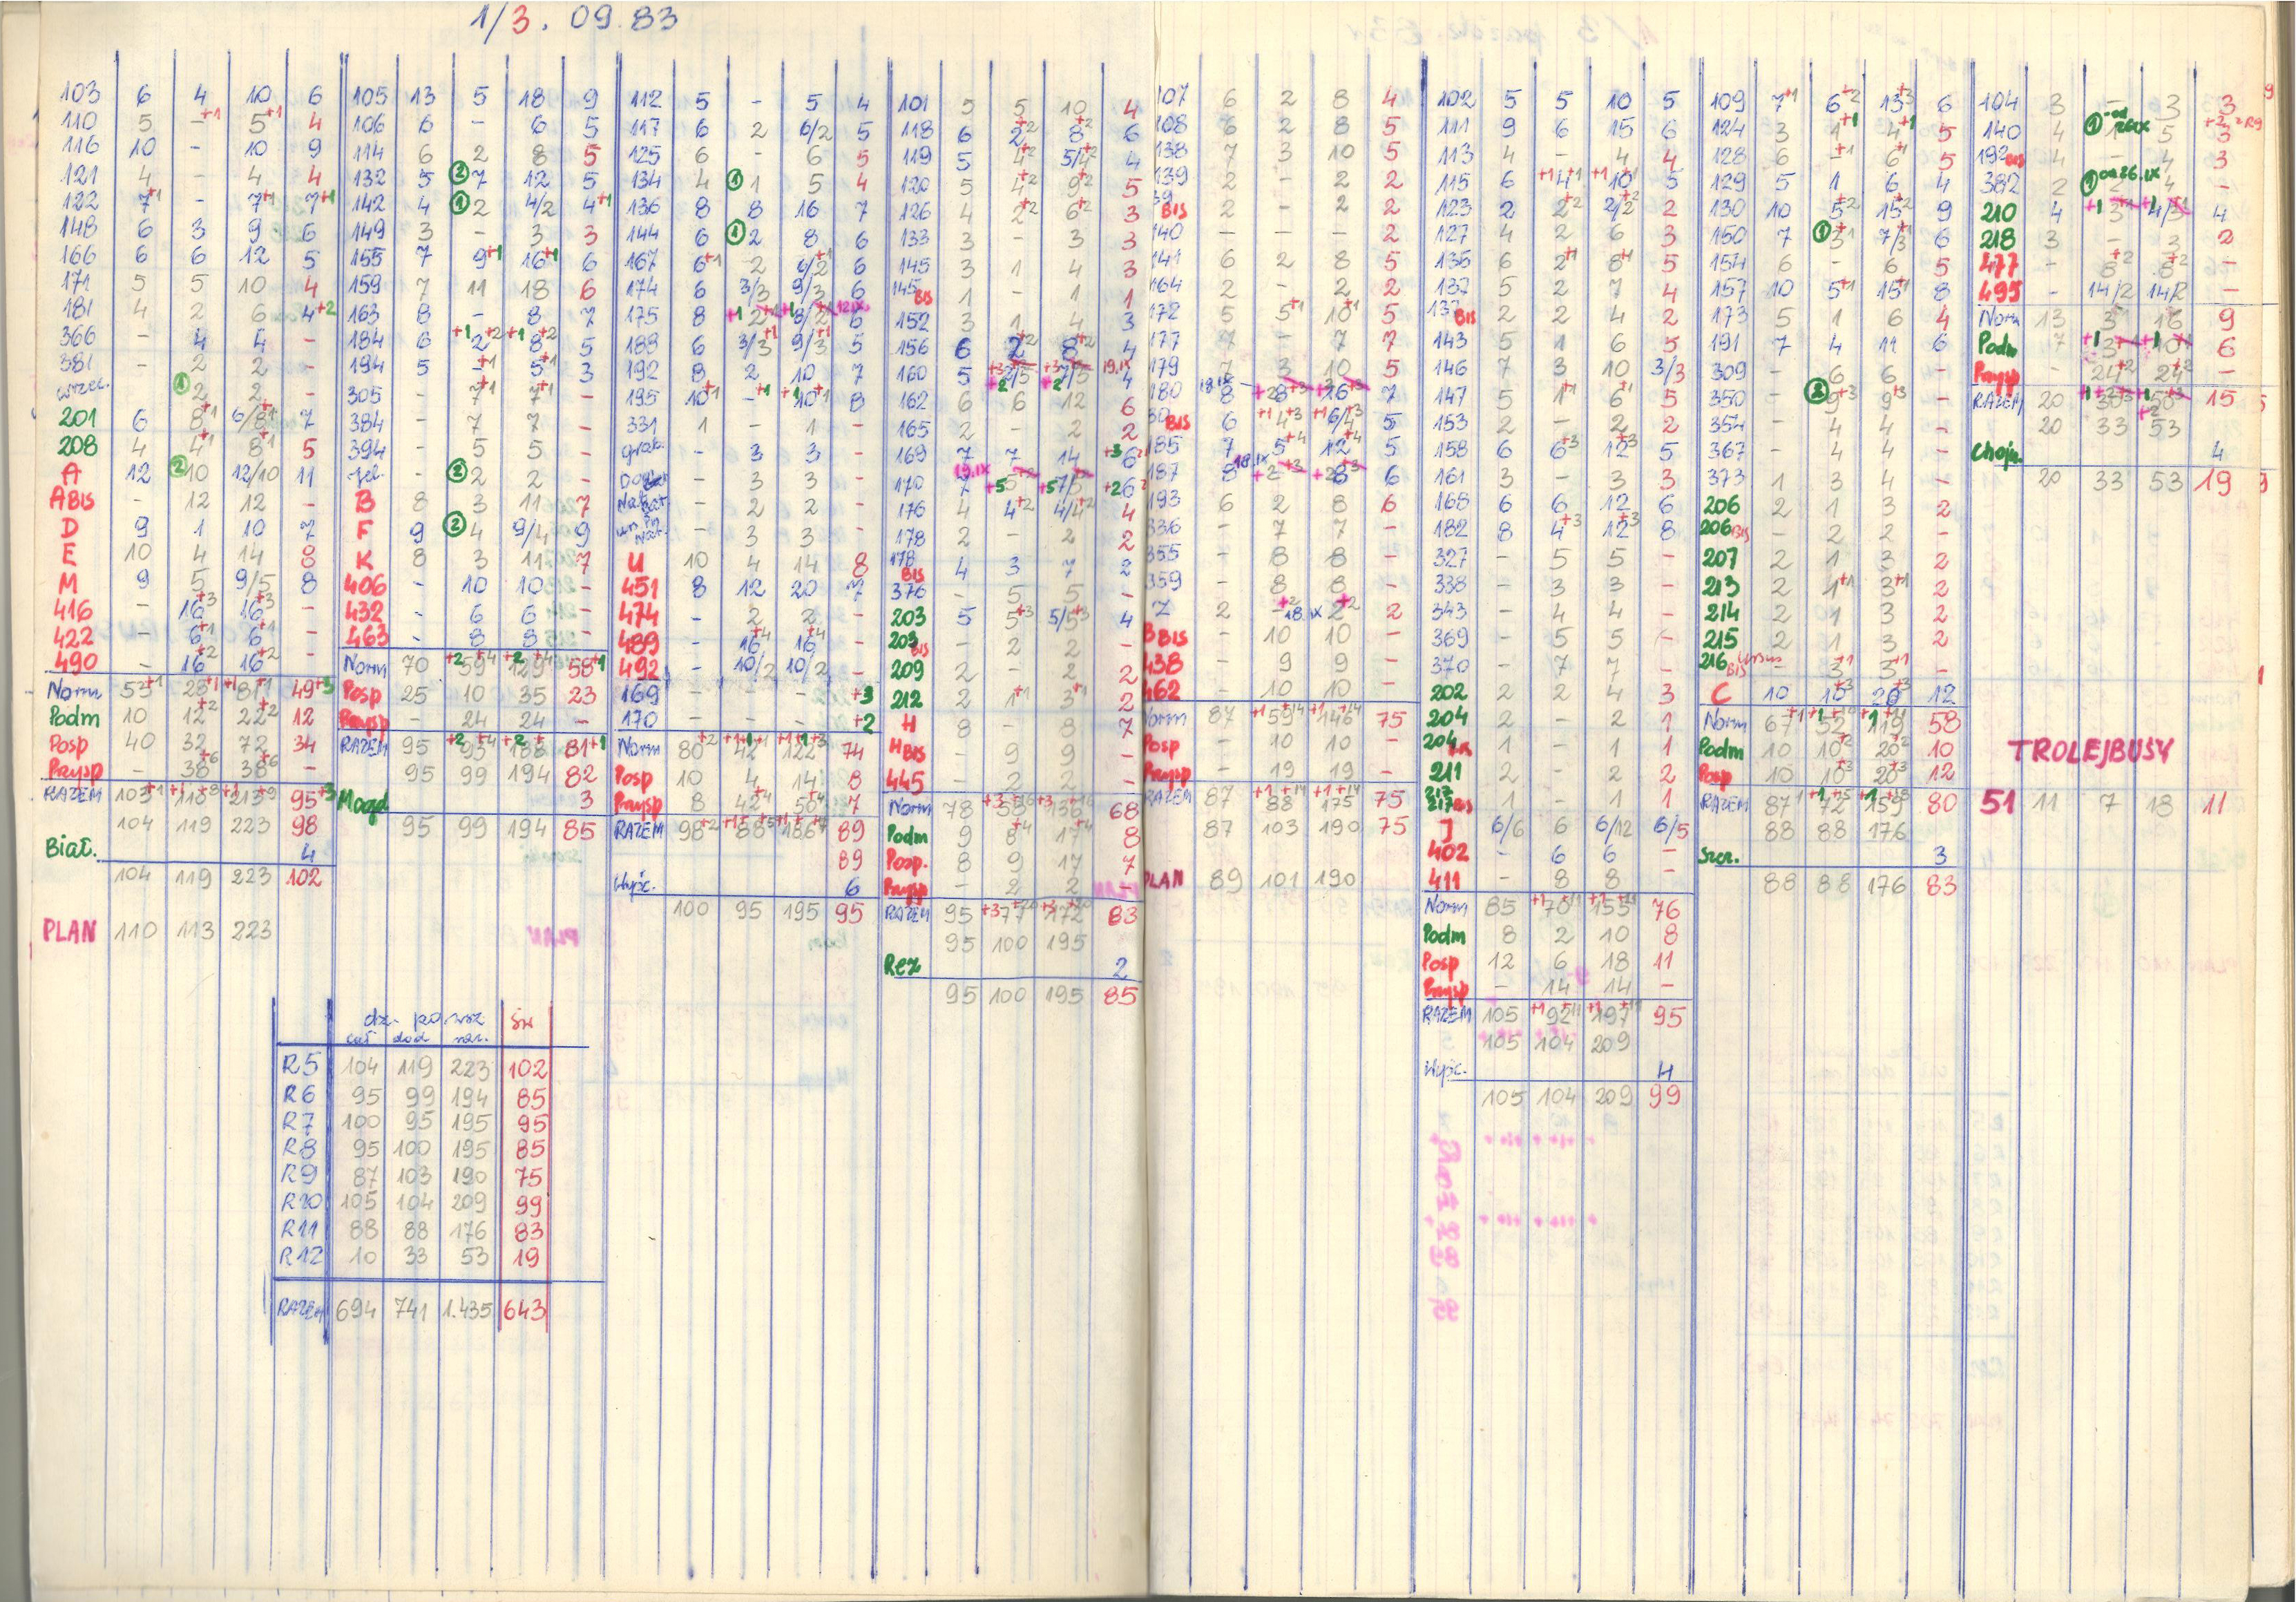 1/3. 09.83
103 6 4 10 6
110 5 -+1 5+1 4
116 10 - 10 9
121 4 - 4 4
122 7+1 - 7+1 7+1
148 6 3 9 6
166 6 6 12 5
171 5 5 10 4
181 4 2 6 4+2
366 - 4 4 -
381 - 2 2 -
① 2 2 -
201 6 8+1 6/8+1 7
208 4 4+1 8+1 5
A 12 ② 10 12/10 11
A BIS - 12 12 -
D 9 1 10 7
E 10 4 14 8
M 9 5 9/5 8
416 - 16+3 16+3 -
422 - 6+1 6+1 -
490 - 16+2 16+2 -
Norm 53+1 49+3
Podm 10 12+2 22+2 12
Posp 40 32 72 34
Przysp - 38+6 38+6 -
RAZEM 103+1 110+8 213+9 95+3
104 119 223 98
Biał. 4
104 119 223 102
PLAN 110 113 223
105 13 5 18 9
106 6 - 6 5
114 6 2 8 5
132 5 ② 7 12 5
142 4 ① 2 4/2 4+1
149 3 - 3 3
155 7 9+1 16+1 6
159 7 11 18 6
163 8 - 8 7
184 6 +1 2+2 +1 8+2 5
194 5 -+1 5+1 3
305 - 7+1 7+1 -
384 - 7 7 -
394 - 5 5 -
② 2 2 -
B 8 3 11 7
F 9 ② 4 9/4 9
K 8 3 11 7
406 - 10 10 -
432 - 6 6 -
463 - 8 8 -
Norm 70 +2 59+4 +2 129+4 58+1
Posp 25 10 35 23
Przysp - 24 24 -
RAZEM 95 +2 93+4 +2 188+ 81+1
95 99 194 82
Magd 3
95 99 194 85
112 5 - 5 4
117 6 2 6/2 5
125 6 - 6 5
134 4 ① 1 5 4
136 8 8 16 7
144 6 ① 2 8 6
167 6+1 2 6/2+1 6
174 6 3/3 9/3 6
175 8
188 6 3/3+1 9/3+1 5
192 8 2 10 7
195 10+1 -+1 +1 10+1 8
331 1 - 1 -
grab. - 3 3 -
- 3 3 -
- 2 2 -
- 3 3 -
U 10 4 14 8
451 8 12 20 7
474 - 2 2 -
489 - 16+4 16+4 -
492 - 10/2 10/2 -
169 - - - +3
170 - - - +2
Norm 80+2 42 122 74
Posp 10 4 14 8
Przysp 8 42+4 50+4 7
RAZEM 98+2 88 186 89
89
Wypć. 6
100 95 195 95
101 5 5 10 4
118 6 2+2 8+2 6
119 5 4+2 5/4+2 4
120 5 4+2 9+2 5
126 4 2+2 6+2 3
133 3 - 3 3
145 3 1 4 3
145 BIS 1 - 1 1
152 3 1 4 3
156 6 2+2 8+2 4
160 5 19.IX 4
162 6 6 12 6
165 2 - 2 2
169 7 7 14 +3 6
170 7 19.IX +5 +5 +2 6
176 4 4+2 4/4+2 4
178 2 - 2 2
178 BIS 4 3 7 2
376 - 5 5 -
203 5 5+3 5/5+3 4
203 BIS - 2 2 -
209 2 - 2 2
212 2 1+1 3+1 2
H 8 - 8 7
H BIS - 9 9 -
445 - 2 2 -
Norm 78 68
Podm 9 8+4 17+4 8
Posp. 8 9 17 7
Przysp - 2 2 -
RAZEM 95 +3 77 +3 172 83
95 100 195
Rez 2
95 100 195 85
107 6 2 8 4
108 6 2 8 5
138 7 3 10 5
139 2 - 2 2
BIS 2 - 2 2
140 - - - 2
141 6 2 8 5
164 2 - 2 2
172 5 5+1 10+1 5
177 7 - 7 7
179 7 3 10 5
180 8 18.IX 7
BIS 6 +1 4+3 +1 6/4+3 5
185 7 5+4 12+4 5
187 8 18.IX 6
193 6 2 8 6
336 - 7 7 -
355 - 8 8 -
359 - 8 8 -
Z 2 -+2 18.IX 2+2 2
B BIS - 10 10 -
438 - 9 9 -
462 - 10 10 -
Norm 87 +1 59+14 +1 146+14 75
Posp - 10 10 -
Przysp - 19 19 -
RAZEM 87 +1 88+14 +1 175+14 75
87 103 190 75
PLAN 89 101 190
102 5 5 10 5
111 9 6 15 6
113 4 - 4 4
115 6 +1 4+1 +1 10+1 5
123 2 2+2 2/2+2 2
127 4 2 6 3
135 6 2+1 8+1 5
137 5 2 7 4
137 BIS 2 2 4 2
143 5 1 6 5
146 7 3 10 3/3
147 5 1+1 6+1 5
153 2 - 2 2
158 6 6+3 12+3 5
161 3 - 3 3
168 6 6 12 6
182 8 4+3 12+3 8
327 - 5 5 -
338 - 3 3 -
343 - 4 4 -
369 - 5 5 -
370 - 7 7 -
202 2 2 4 3
204 2 - 2 1
204 BIS 1 - 1 1
211 2 - 2 2
217 BIS 1 - 1 1
J 6/6 6 6/12 6/5
402 - 6 6 -
411 - 8 8 -
Norm 85 +1 70+11 155+11 76
Podm 8 2 10 8
Posp 12 6 18 11
Przysp - 14 14 -
RAZEM 105 +1 92+11 +1 197+11 95
105 104 209
Wypć. 4
105 104 209 99
109 7+1 6+2 13+3 6
124 3 1+1 4+1 5
128 6 -+1 6+1 5
129 5 1 6 4
130 10 5+2 15+2 9
150 7 ① 3+1 7/3 6
154 6 - 6 5
157 10 5+1 15+1 8
173 5 1 6 4
191 7 4 11 6
309 - 6 6 -
350 - ② 9+3 9+3 -
354 - 4 4 -
367 - 4 4 -
373 1 3 4 -
206 2 1 3 2
206 BIS - 2 2 -
207 2 1 3 2
213 2 1+1 3+1 2
214 2 1 3 2
215 2 1 3 2
216 BIS Ursus - 3+1 3+1 -
C 10 10+3 20+3 12
Norm 67+1 52 119 58
Podm 10 10+2 20+2 10
Posp 10 10+3 20+3 12
RAZEM 87+1 72+15 159 80
88 88 176
Szcz. 3
88 88 176 83
104 3 - 3 3
140 4 ① 1 5 3
192 BIS 4 - 4 3
382 2 ① od 26.IX 2 4 -
210 4 +1 3 +1 4/3 4
218 3 - 3 2
477 - 8+2 8+2 -
495 - 14/2 14/2 -
Norm 13 3 16 9
Podm 7 +1 3 +1 10 6
Przysp - 24+2 24+2 -
RAZEM 20 30 50 15
20 33 53
Chojn. 4
20 33 53 19
TROLEJBUSY
51 11 7 18 11
dz. powsz św
cał dod raz.
R5 104 119 223 102
R6 95 99 194 85
R7 100 95 195 95
R8 95 100 195 85
R9 87 103 190 75
R10 105 104 209 99
R11 88 88 176 83
R12 10 33 53 19
RAZEM 694 741 1.435 643